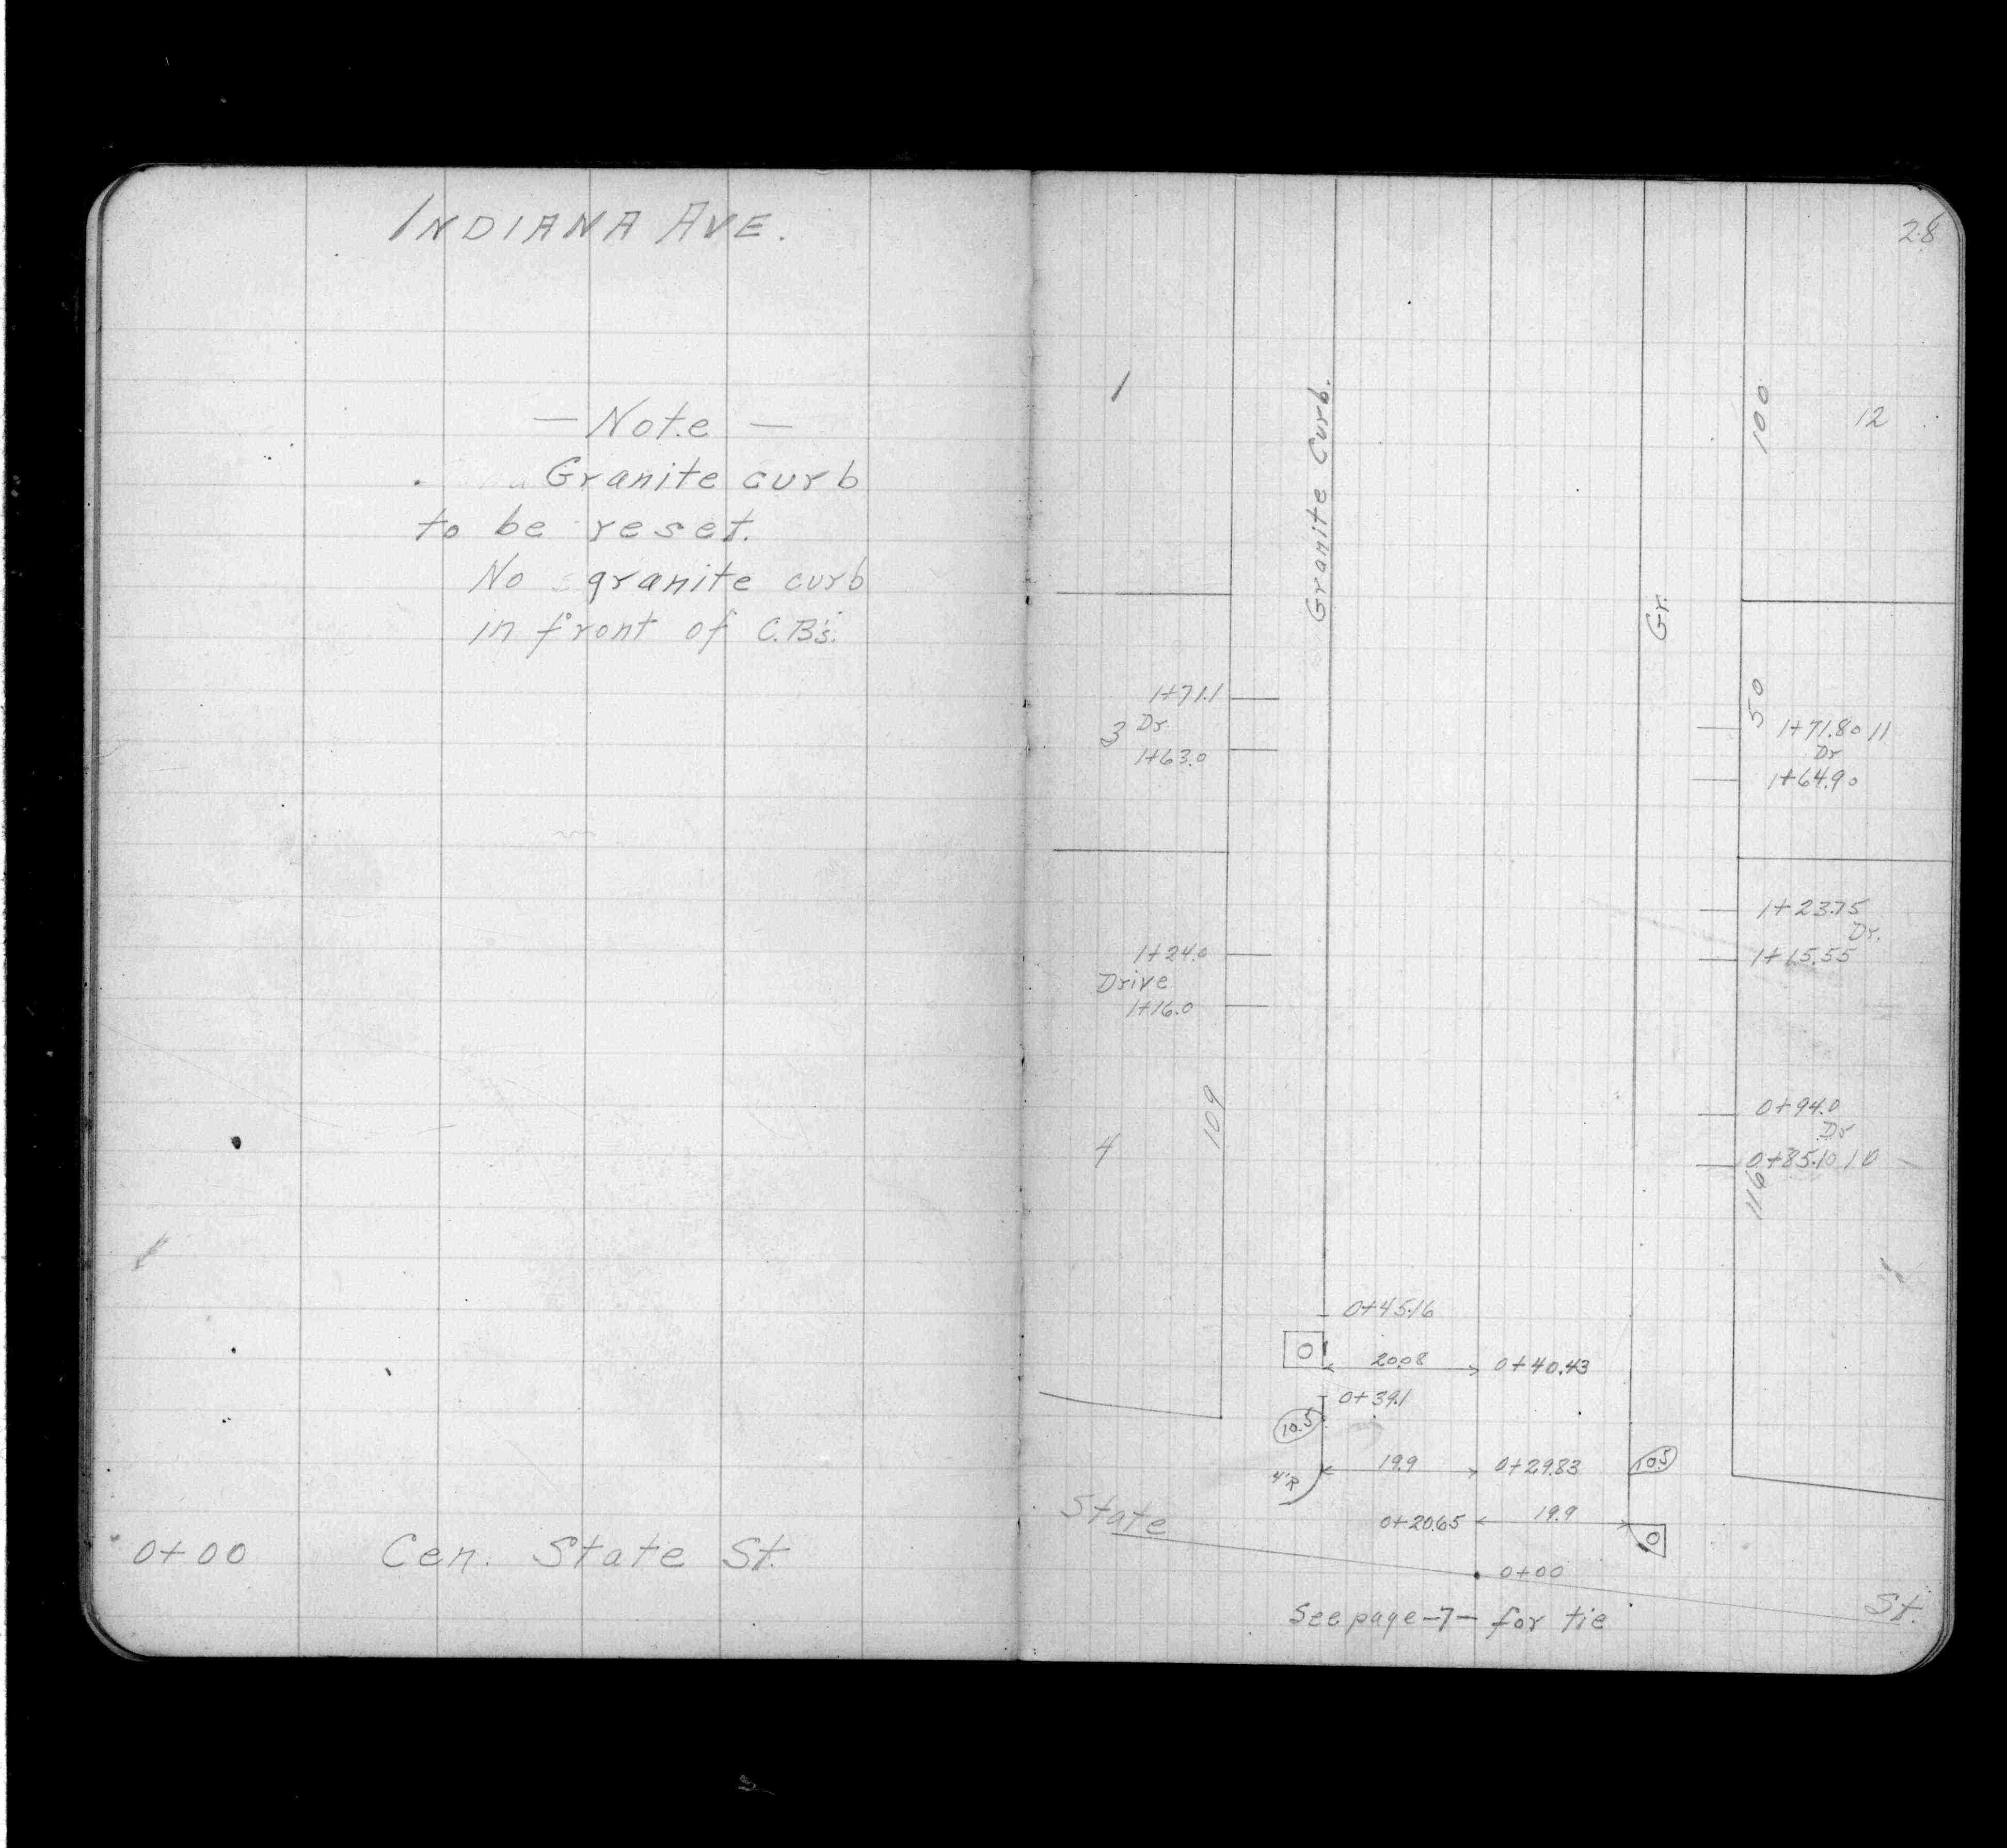 INDIANA AVE.
— Note —
Granite curb
to be reset.
No granite curb
in front of C.B's.
0+00 Cen. State St.
28
1
Granite Curb.
100
12
Gr.
1+71.1
3 Dr
1+63.0
50
1+71.80 11
Dr
1+64.90
1+23.75
Dr.
1+15.55
1+24.0
Drive
1+16.0
109
4
0+94.0
Dr
0+85.10 10
116
0+45.16
20.08 0+40.43
0+39.1
10.5
19.9 0+29.83
10.5
4'R
State
0+20.65 19.9
0+00
St.
See page -7- for tie